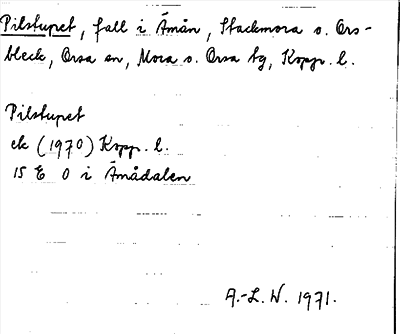 Pilstupet, fall i Ämån, Stackmora o. Ors-
bleck, Orsa sn, Mora o. Orsa tg, Kopp. l.
Pilstupet
ek (1970) Kopp. l.
15 E 0 i Ämådalen
A.-L. W. 1971.